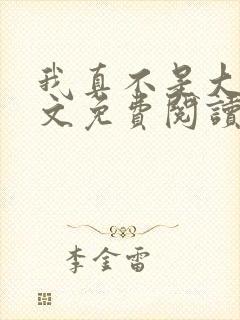 我真不是大
文免費閱讀
李金雷